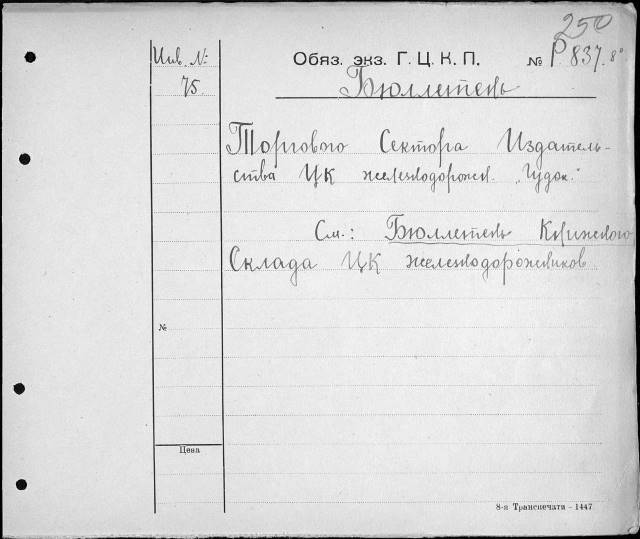 250
Инв. №:
75
Обяз. экз. Г. Ц. К. П.
№ Р 837. 8°
Бюллетень
Торгового Сектора Издатель-
ства ЦК железнодорожн. „Гудок."
См.: Бюллетень Книжного
Склада ЦК железнодорожников
№
Цена
8-я Транспечати - 1447